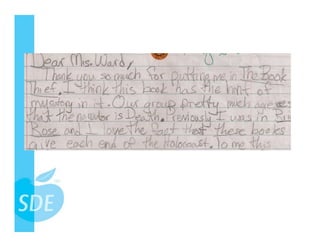 Dear Mrs. Ward,
Thank you so much for putting me in The Book
Thief. I think this book has the hint of
mystery in it. Our group pretty much agrees
that the narrator is Death. Previously I was in
Rose and I love the fact that these books
give each end of the Holocaust. To me this
SDE